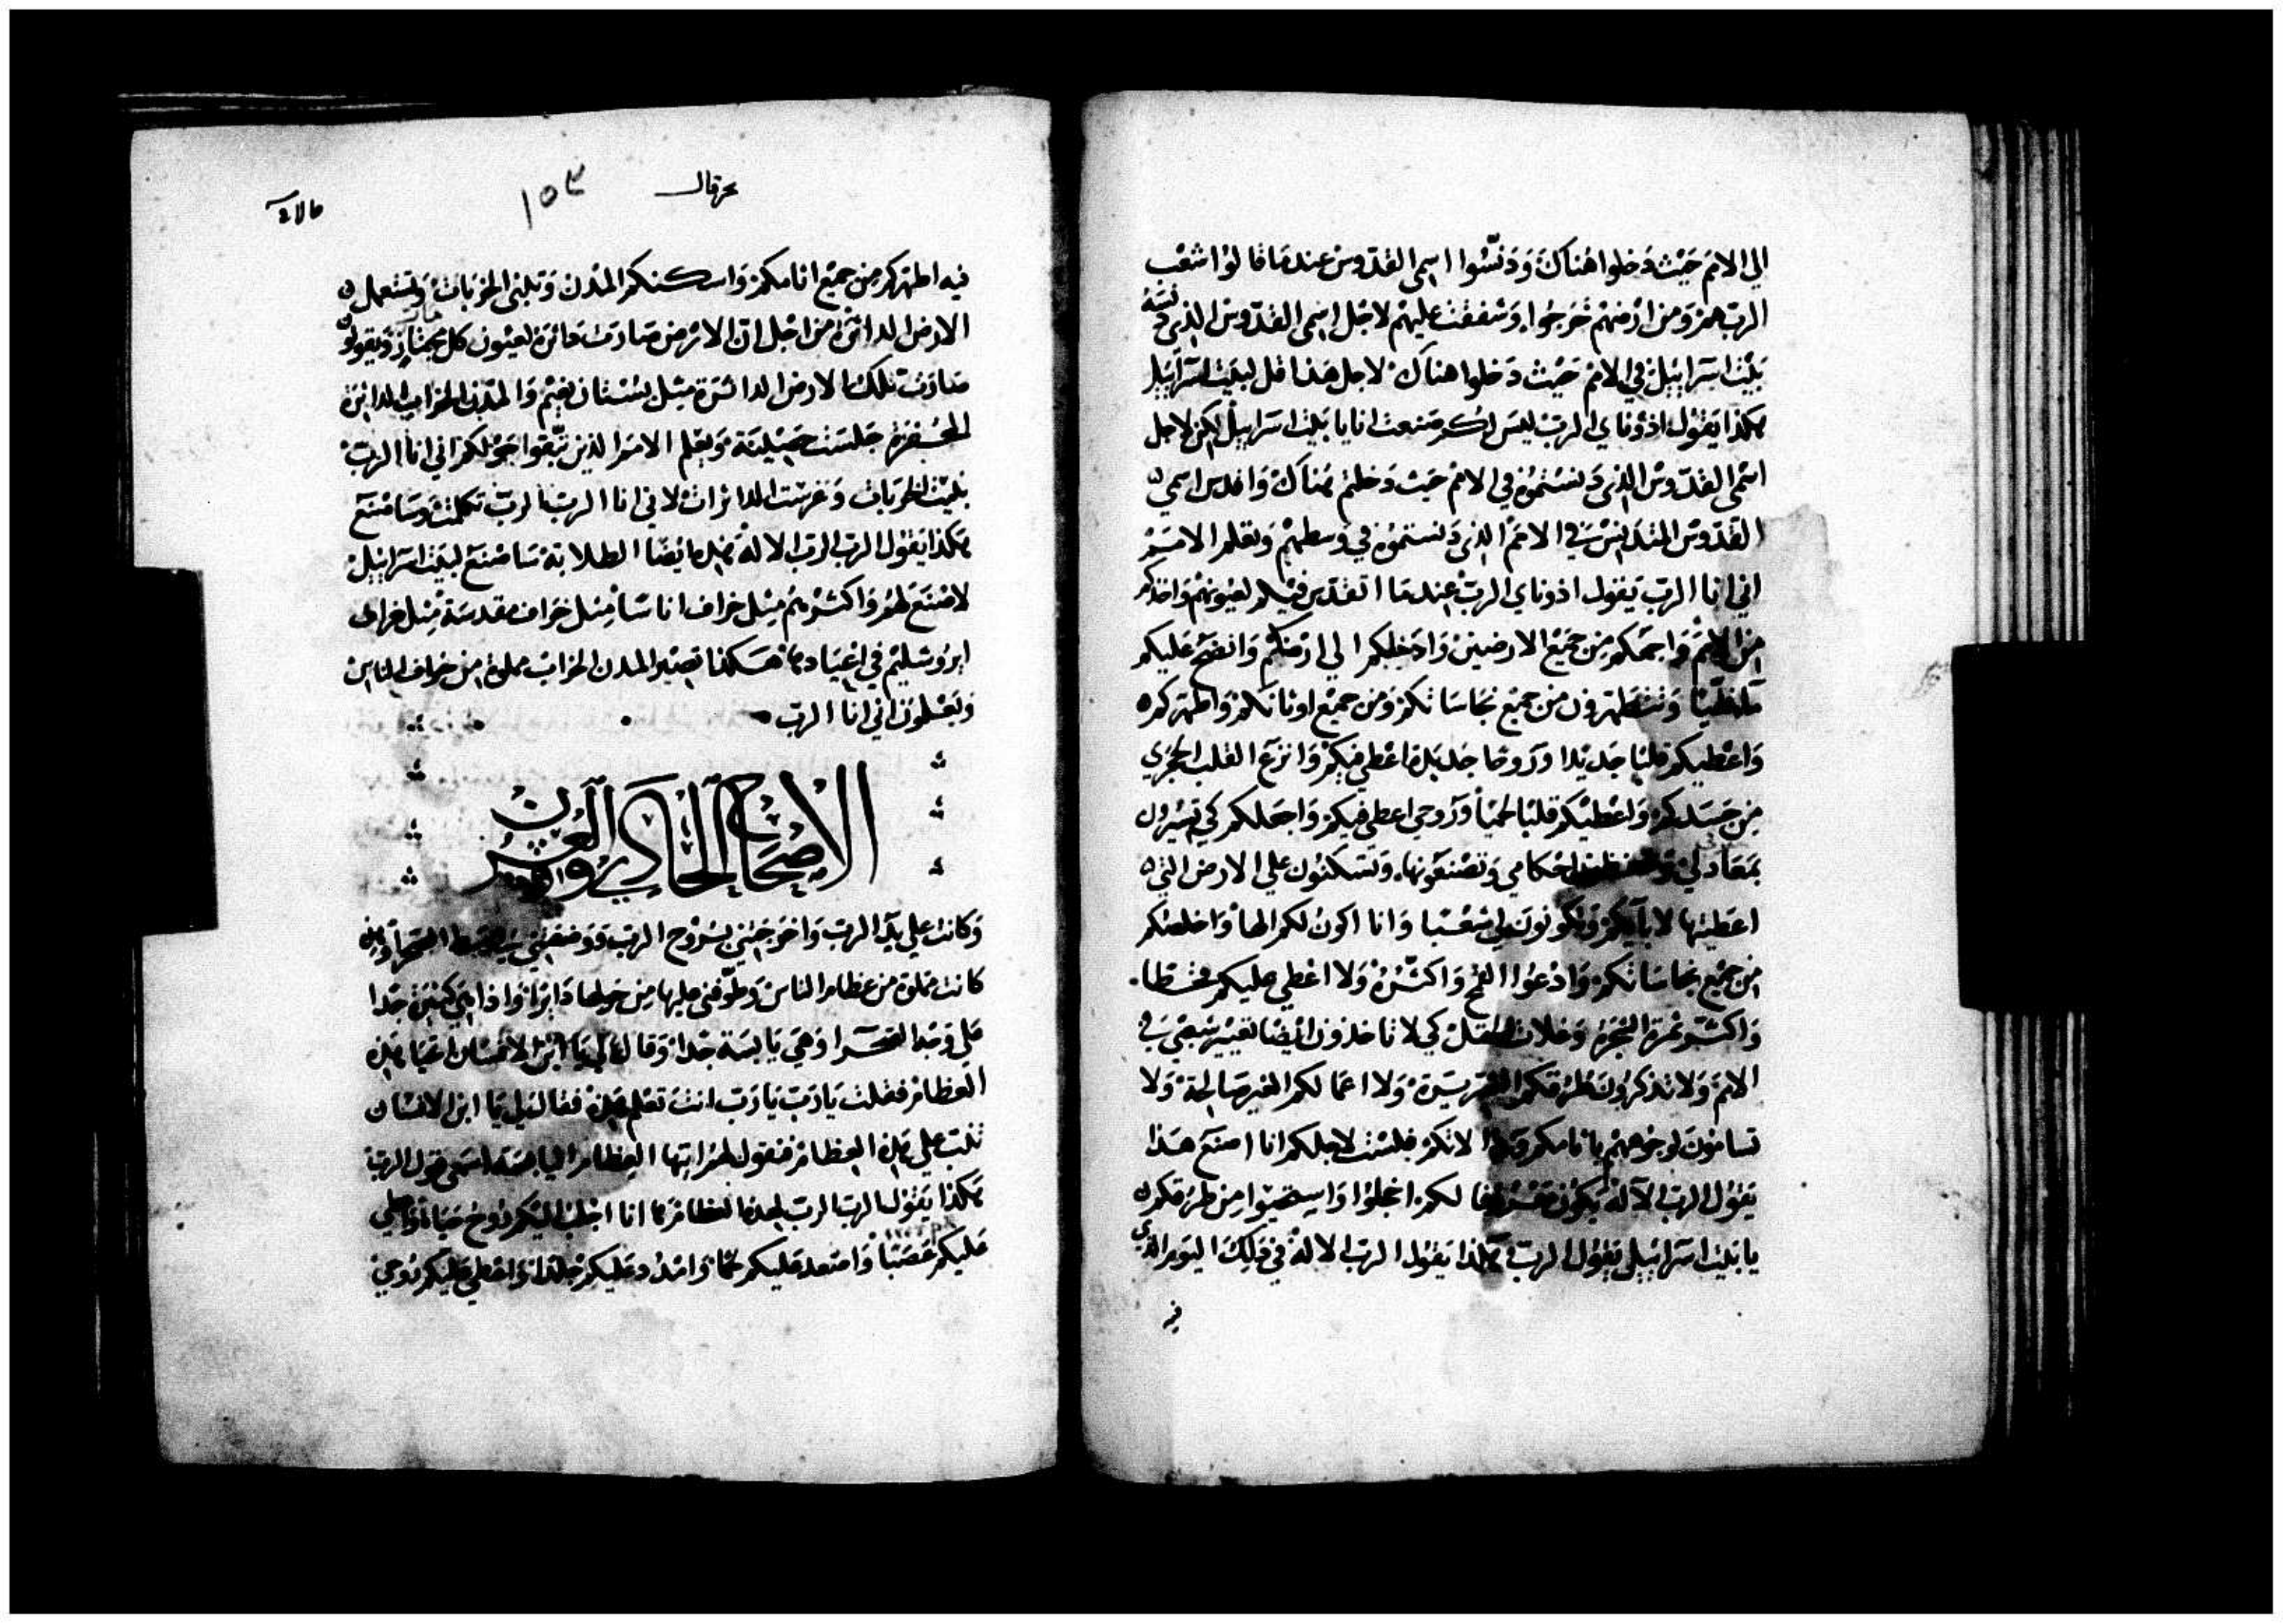 الي الامم حيث دخلوا هناك ودنسوا اسمي القدوس عندما قالوا شعب
الرب هم ومن ارضهم خرجوا وشفقت عليهم لاجل اسمي القدوس الذي دنسه
بيت اسراييل في الامم حيث دخلوا هناك لاجل هذا قل لبيت اسراييل
هكذا يقول ادوناي الرب ليس لكم صنعت انا يا بيت اسراييل لكن لاجل
اسمي القدوس الذي دنستموه في الامم حيث دخلتم هناك واقدس اسمي
القدوس المتدنس في الامم الذي دنستموه في وسطهم وتعلم الامم
اني انا الرب يقول ادوناي الرب عندما اتقدس فيكم لعيونهم واخذكم
من الامم واجمعكم من جميع الارضين وادخلكم الي ارضكم وانضح عليكم
وتتطهرون من جميع نجاساتكم ومن جميع اوثانكم واطهركم
واعطيكم قلبا جديدا وروحا جديدة اعطي فيكم وانزع القلب الحجري
من جسدكم واعطيكم قلبا لحميا وروحي اعطي فيكم واجعلكم كي تسيرون
احكامي وتصنعونها وتسكنون علي الارض التي
اعطيتها لابايكم وتكونون لي شعبا وانا اكون لكم الها واخلصكم
من جميع نجاساتكم وادعوا القمح واكثره ولا اعطي عليكم قحطا
واكثر ثمرة الشجرة وغلات الحقل كي لا تاخذون ايضا تعيير شبعي في
الامم ولا تذكرون طرقكم ولا اعمالكم الغير صالحة ولا
لوجوههم باثامكم لانكم فليست لاجلكم انا اصنع هذا
يقول الرب الاله يكون لكم اخجلوا واستحيوا من طرقكم
يا بيت اسراييل يقول الرب هكذا يقول الرب الاله في ذلك اليوم الذي
فيه
حزقيال
١٥٣
فيه اطهركم من جميع اثامكم واسكنكم المدن وتبني الخربات وتستعمل
الارض الداثرة من اجل ان الارض صارت داثرة لعيون كل مجتاز ويقولون
صارت تلك الارض الداثرة مثل بستان نعيم والمدن الخراب الداثرة
جلست حصينة وتعلم الامم الذين تبقوا حولكم اني انا الرب
بنيت الخربات وغرست الداثرات لاني انا الرب الرب تكلمت وساصنع
هكذا يقول الرب الرب الاله هذه ايضا الطلابة ساصنع لبيت اسراييل
لاصنع لهم واكثرهم مثل خراف اناسا مثل خراف مقدسة مثل خراف
ايروشليم في اعيادها هكذا تصير المدن الخراب مملوة من خراف الناس
وتعلمون اني انا الرب
الاصحاح الحادي والعشرون
وكانت علي يد الرب واخرجتني بروح الرب ووضعتني في وسط الصحرا وهذه
كانت مملوة من عظام الناس وطوفني عليها من حولها دايرا واذا هي كثيرة جدا
علي وجه الصحرا وهي يابسة جدا وقال لي يا ابن الانسان اتحيا هذه
العظام فقلت يا رب يا رب انت تعلم هذه فقال لي يا ابن الانسان
تنب علي هذه العظام فتقول لهم ايتها العظام اليابسة اسمعي قول الرب
هكذا يقول الرب الرب لهذه العظام ها انا اجلب اليكم روح حياة واعطي
عليكم عصبا واصعد عليكم لحما وامدد عليكم جلدا واعطي عليكم روحي